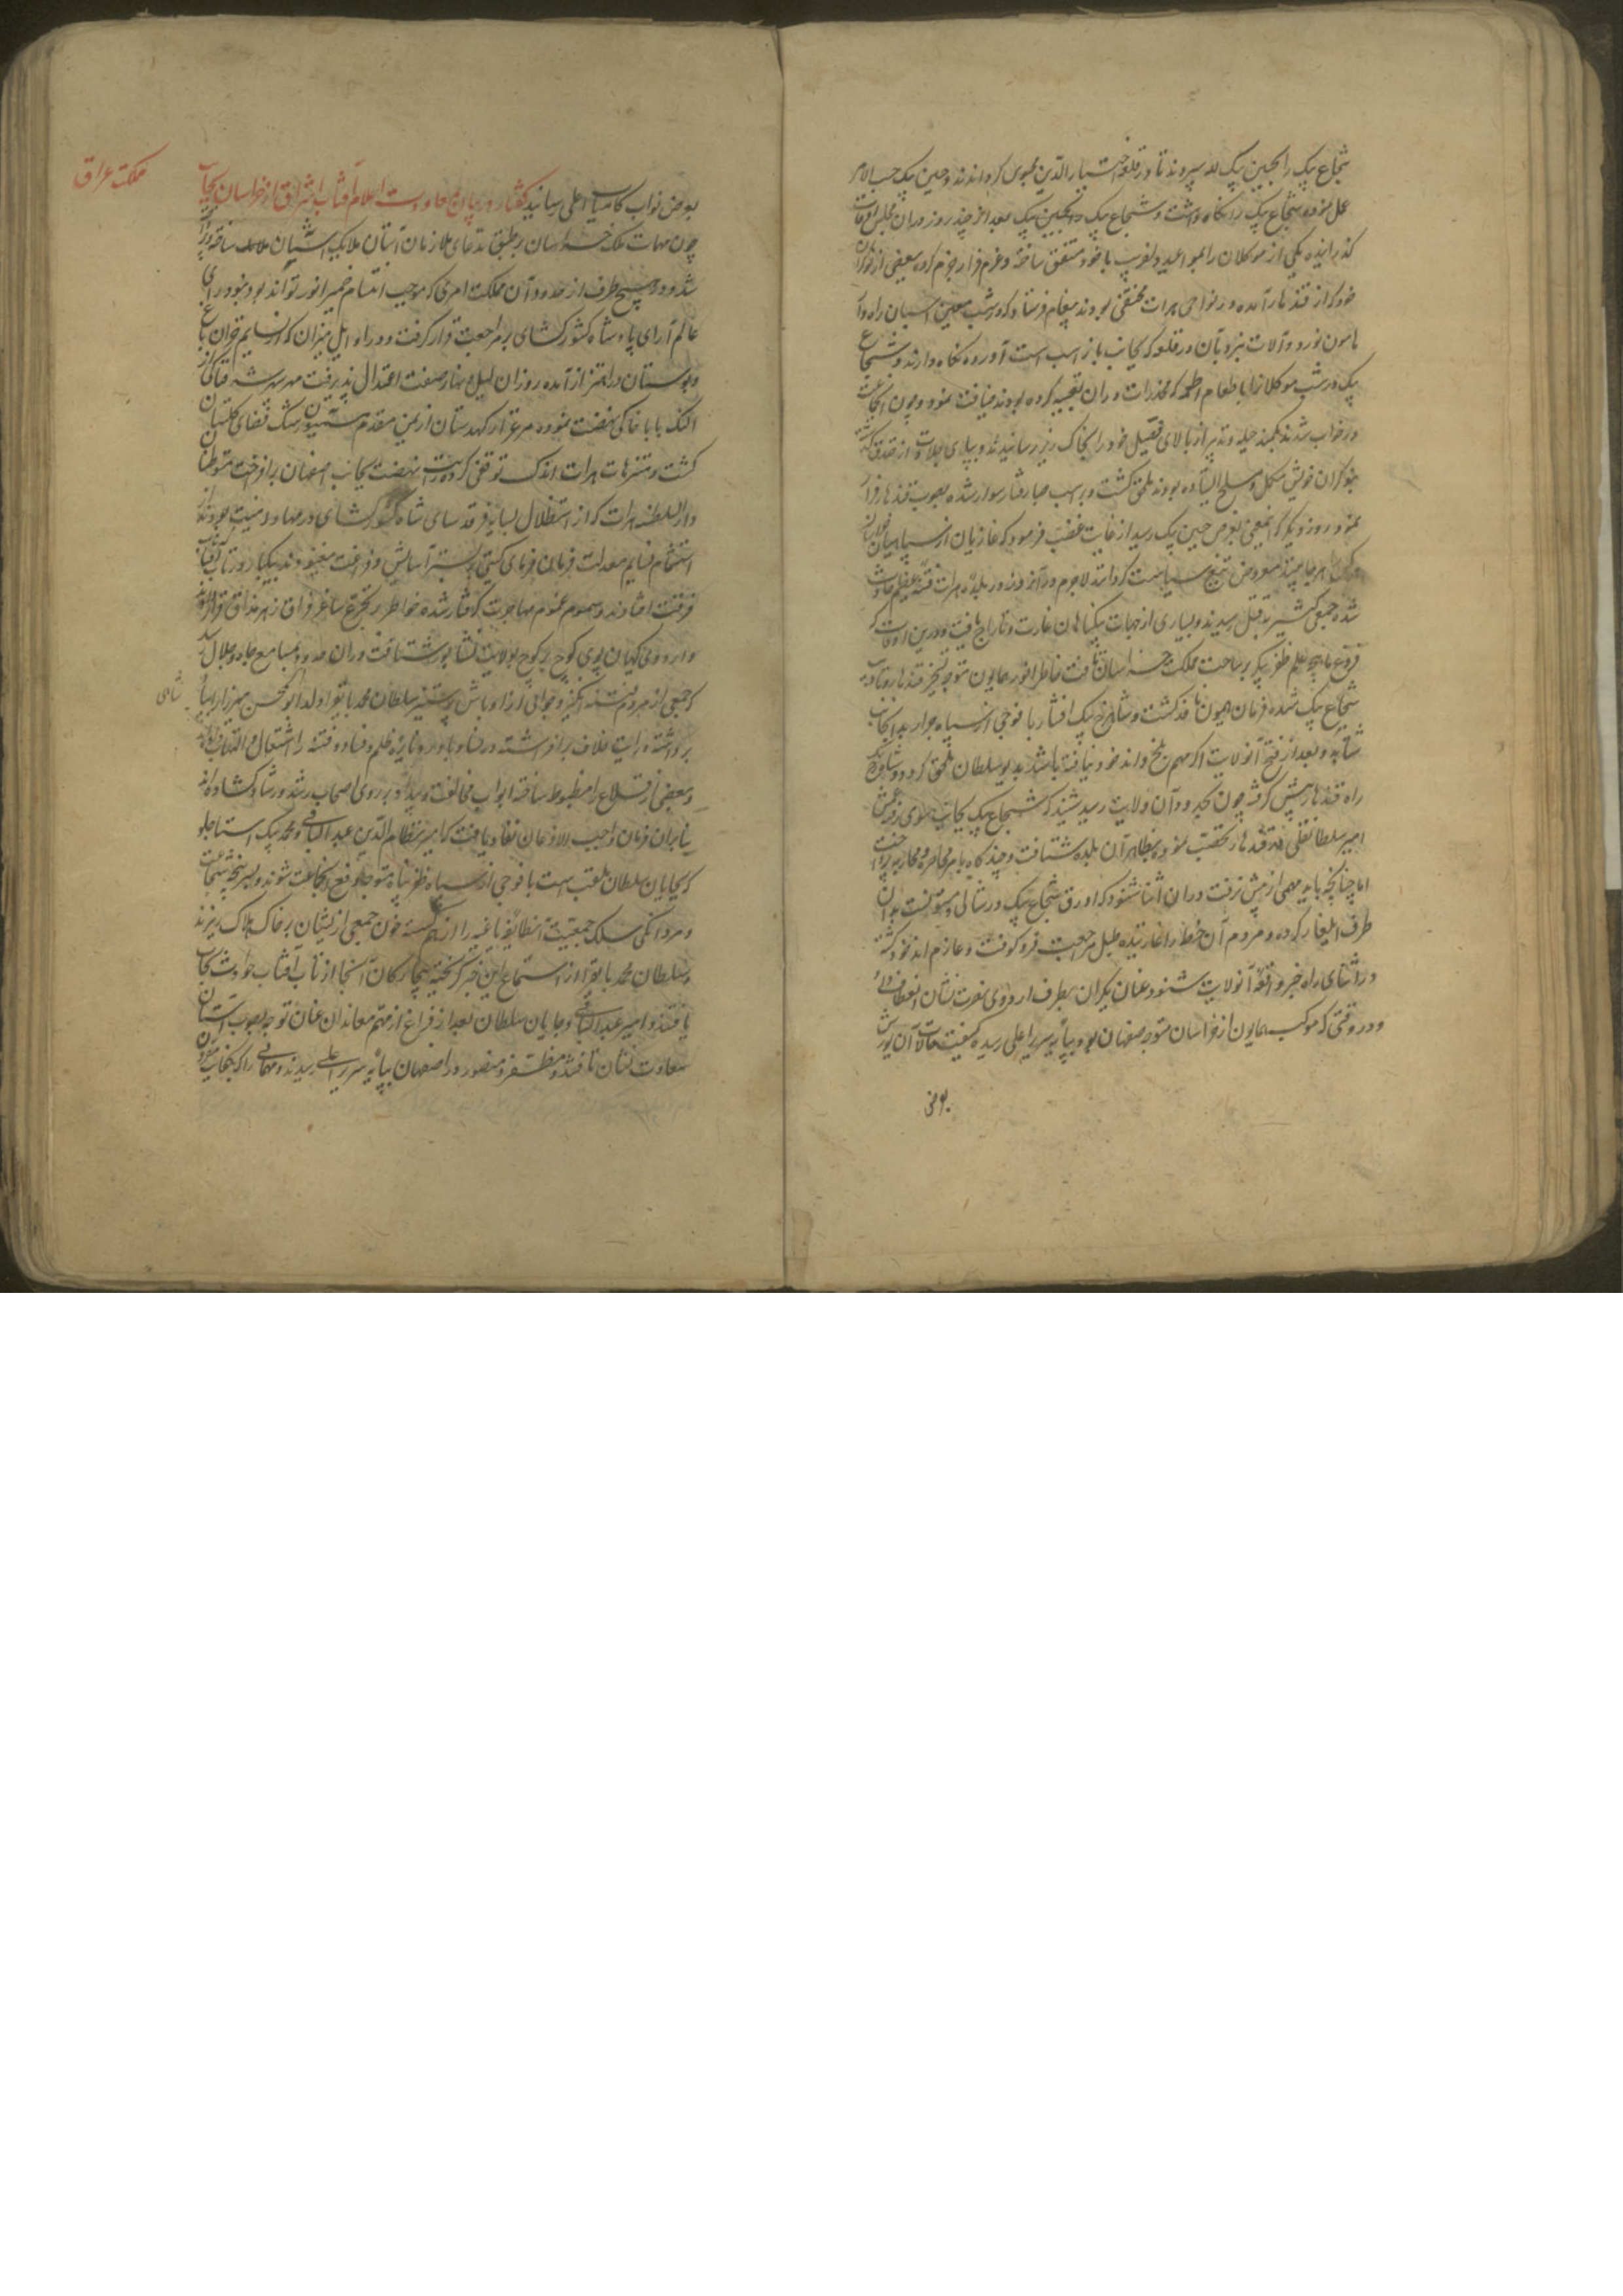 شجاع بیک را بحسین بیک لله سپردند تا در قلعه اختیار الدین محبوس گرداندند و حسین بیک حسب الامر
عمل نموده شجاع بیک را نگاه داشت و شجاع بیک بعد از چند روز در آن مجلس اوقات
گذرانیده یکی از موکلان را بمواعید دلفریب با خود متفق ساخته و عزم فرار جزم کرده ببعضی از نوکران
خود که از قندهار آمده در نواحی هرات مختفی بودند پیغام فرستاد که در شب معین اسبان راه وار
هامون نورد و آلات نردبان در قلعه که بجانب بازار اسب است آورده نگاه دارند و شجاع
بیک در شب موکلانرا با طعام اطعمه که مخدرات در آن تعبیه کرده بودند ضیافت نمود و چون آنجماعت
در خواب شدند بکمند حیله و تدبیر از بالای فصیل خود را بخاک ریز رسانیدند و بپای جلادت از خندق گذشته
بنوکران خویش که مکمل و مسلح ایستاده بودند ملحق گشت و بر اسب صبا رفتار سوار شده بصوب قندهار فرار
نمود روز دیگر که این معنی بعرض حسین بیک رسید از غایت غضب فرمود که غازیان از سپاهیان
هر جا بینند معروض تیغ سیاست گردانند لاجرم در آن روز در بلده هرات فتنه عظیم حادث
شده جمعی کثیر بقتل رسیدند و بسیاری از جهات بیگناهان غارت و تاراج یافت و درین اوقات که
فروغ ماهچه علم ظفر پیکر بر ساحت مملکت خراسان تافت خاطر انور همایون متوجه تسخیر قندهار و تادیب
شجاع بیک شده فرمان همیون نافذ گشت و شاهرخ بیک افشار با فوجی از سپاه جرار بدانجانب
شتابد و بعد از فتح آن ولایت اگر مهم بلخ و اندخود نیافته باشد بدیو سلطان ملحق گردد و شاهرخ بیک
راه قندهار پیش گرفته چون بحدود آن ولایت رسید شنید که شجاع بیک بجانب
امیر سلطانقلی قندهار تحصن نموده بظاهر آن بلده شتافت و چند گاه بامر محاصره و محاربه پرداخت
اما چنانچه باید مهمی از پیش نرفت در آن اثنا شنود که اورق شجاع بیک در شال و مستونگ است بدان
طرف ایلغار کرده و مردم آن خطه را غارتیده طبل مراجعت فرو کوفت و عازم اندخود گشته
در اثنای راه خبر واقعه آن ولایت شنود عنان یکران بطرف اردوی نصرت نشان انعطاف داد
و در وقتی که موکب همایون از خراسان متوجه صفهان بود بپایه سریر اعلی رسیده کیفیت حالات آن یورش
بعرض
بعرض نواب کامیاب اعلی رسانید گفتار در بیان معاودت اعلام آفتاب اشراق از خراسان بجانب
مملکت عراق
چون مهمات ملک خراسان بر طبق مدعای ملازمان آستان ملایک آشیان ساخته و پرداخته
شد و در هیچ طرف از حدود آن مملکت امری که موجب اقتسام ضمیر انور تواند بود نبود رای
عالم آرای پادشاه کشورگشای بر مراجعت قرار گرفت و در اوایل میزان که از نسایم خزان باغ
و بوستان در اهتزاز آمده روز از لیل و نهار صفت اعتدال پذیرفت
النگ بابا خاکی نهضت نموده مرغزار کهدستان از یمن مقدم همیون رشک فضای گلستان
گشت و متنزهات هرات اندک توقفی کرده رایت نهضت بجانب اصفهان برافراخت متوطنان
دار السلطنه هرات که از استظلال بسایه فرقد سای شاه کشورگشای در مهاد امنیت بودند و از
استشمام نسایم معدلت فرمان فرمای گیتی بر بستر آسایش و فراغت میغنودند بیکبار روز تاب آفتاب
فرقت افتادند و بسموم غموم مهاجرت گرفتار شده خاطر بر تجرع ساغر فراق زهر مذاق قرار دادند
و اردوی کیهان پوی کوچ بر کوچ بولایت نشابور شتافت در آن حدود بمسامع جاه و جلال رسید
که جمعی از مردم فتنه انگیز و جوانی از اوباش پرستیز سلطان محمد بایقرا ولد ابو المحسن میرزا را بپادشاهی
برداشته و رایت خلاف برافراشته در نسا و باورد نایره ظلم و فساد و فتنه را اشتعال و التهاب داده
و بعضی از قلاع را مضبوط ساخته ابواب مخالفت و بیداد بر روی اصحاب رشد و رشاد گشاده اند
بنابران فرمان واجب الاذعان نفاذ یافت که امیر نظام الدین عبد الباقی و محمد بیک استاجلو
که بچایان سلطان ملقب است با فوجی از سپاه ظفر پناه متوجه دفع آنجماعت شوند و بسرپنجه شجاعت
و مردانگی سلک جمعیت آن طایفه باغیه را از هم گسسته خون جمعی از ایشان بر خاک هلاک ریزند
و سلطان محمد بایقرا از استماع این خبر گریخته بیچارگان آنجا از تاب آفتاب حوادث نجات
یافتند و امیر عبد الباقی و چایان سلطان بعد از فراغ از مهم معاندان عنان توجه بصوب آستان
سعادت نشان تافتند و مظفر و منصور در اصفهان بپایه سریر اعلی رسیدند و مهماتی را که بجانب